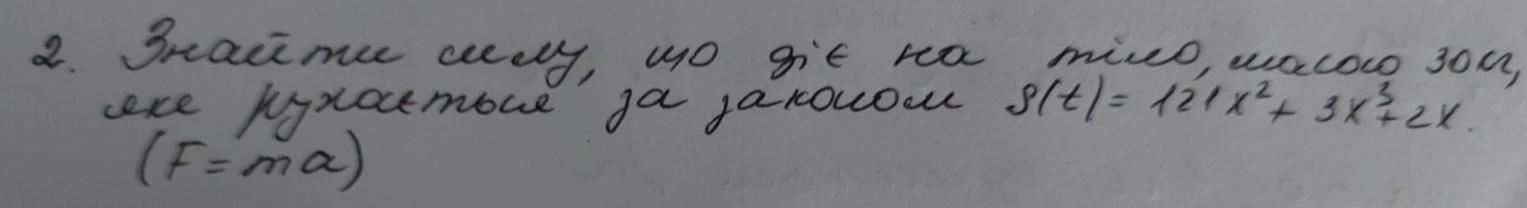 2. Знайти силу, що діє на тіло, масою 30кг,
яке рухається за законом S(t) = 121x² + 3x³ + 2x.
(F = ma)